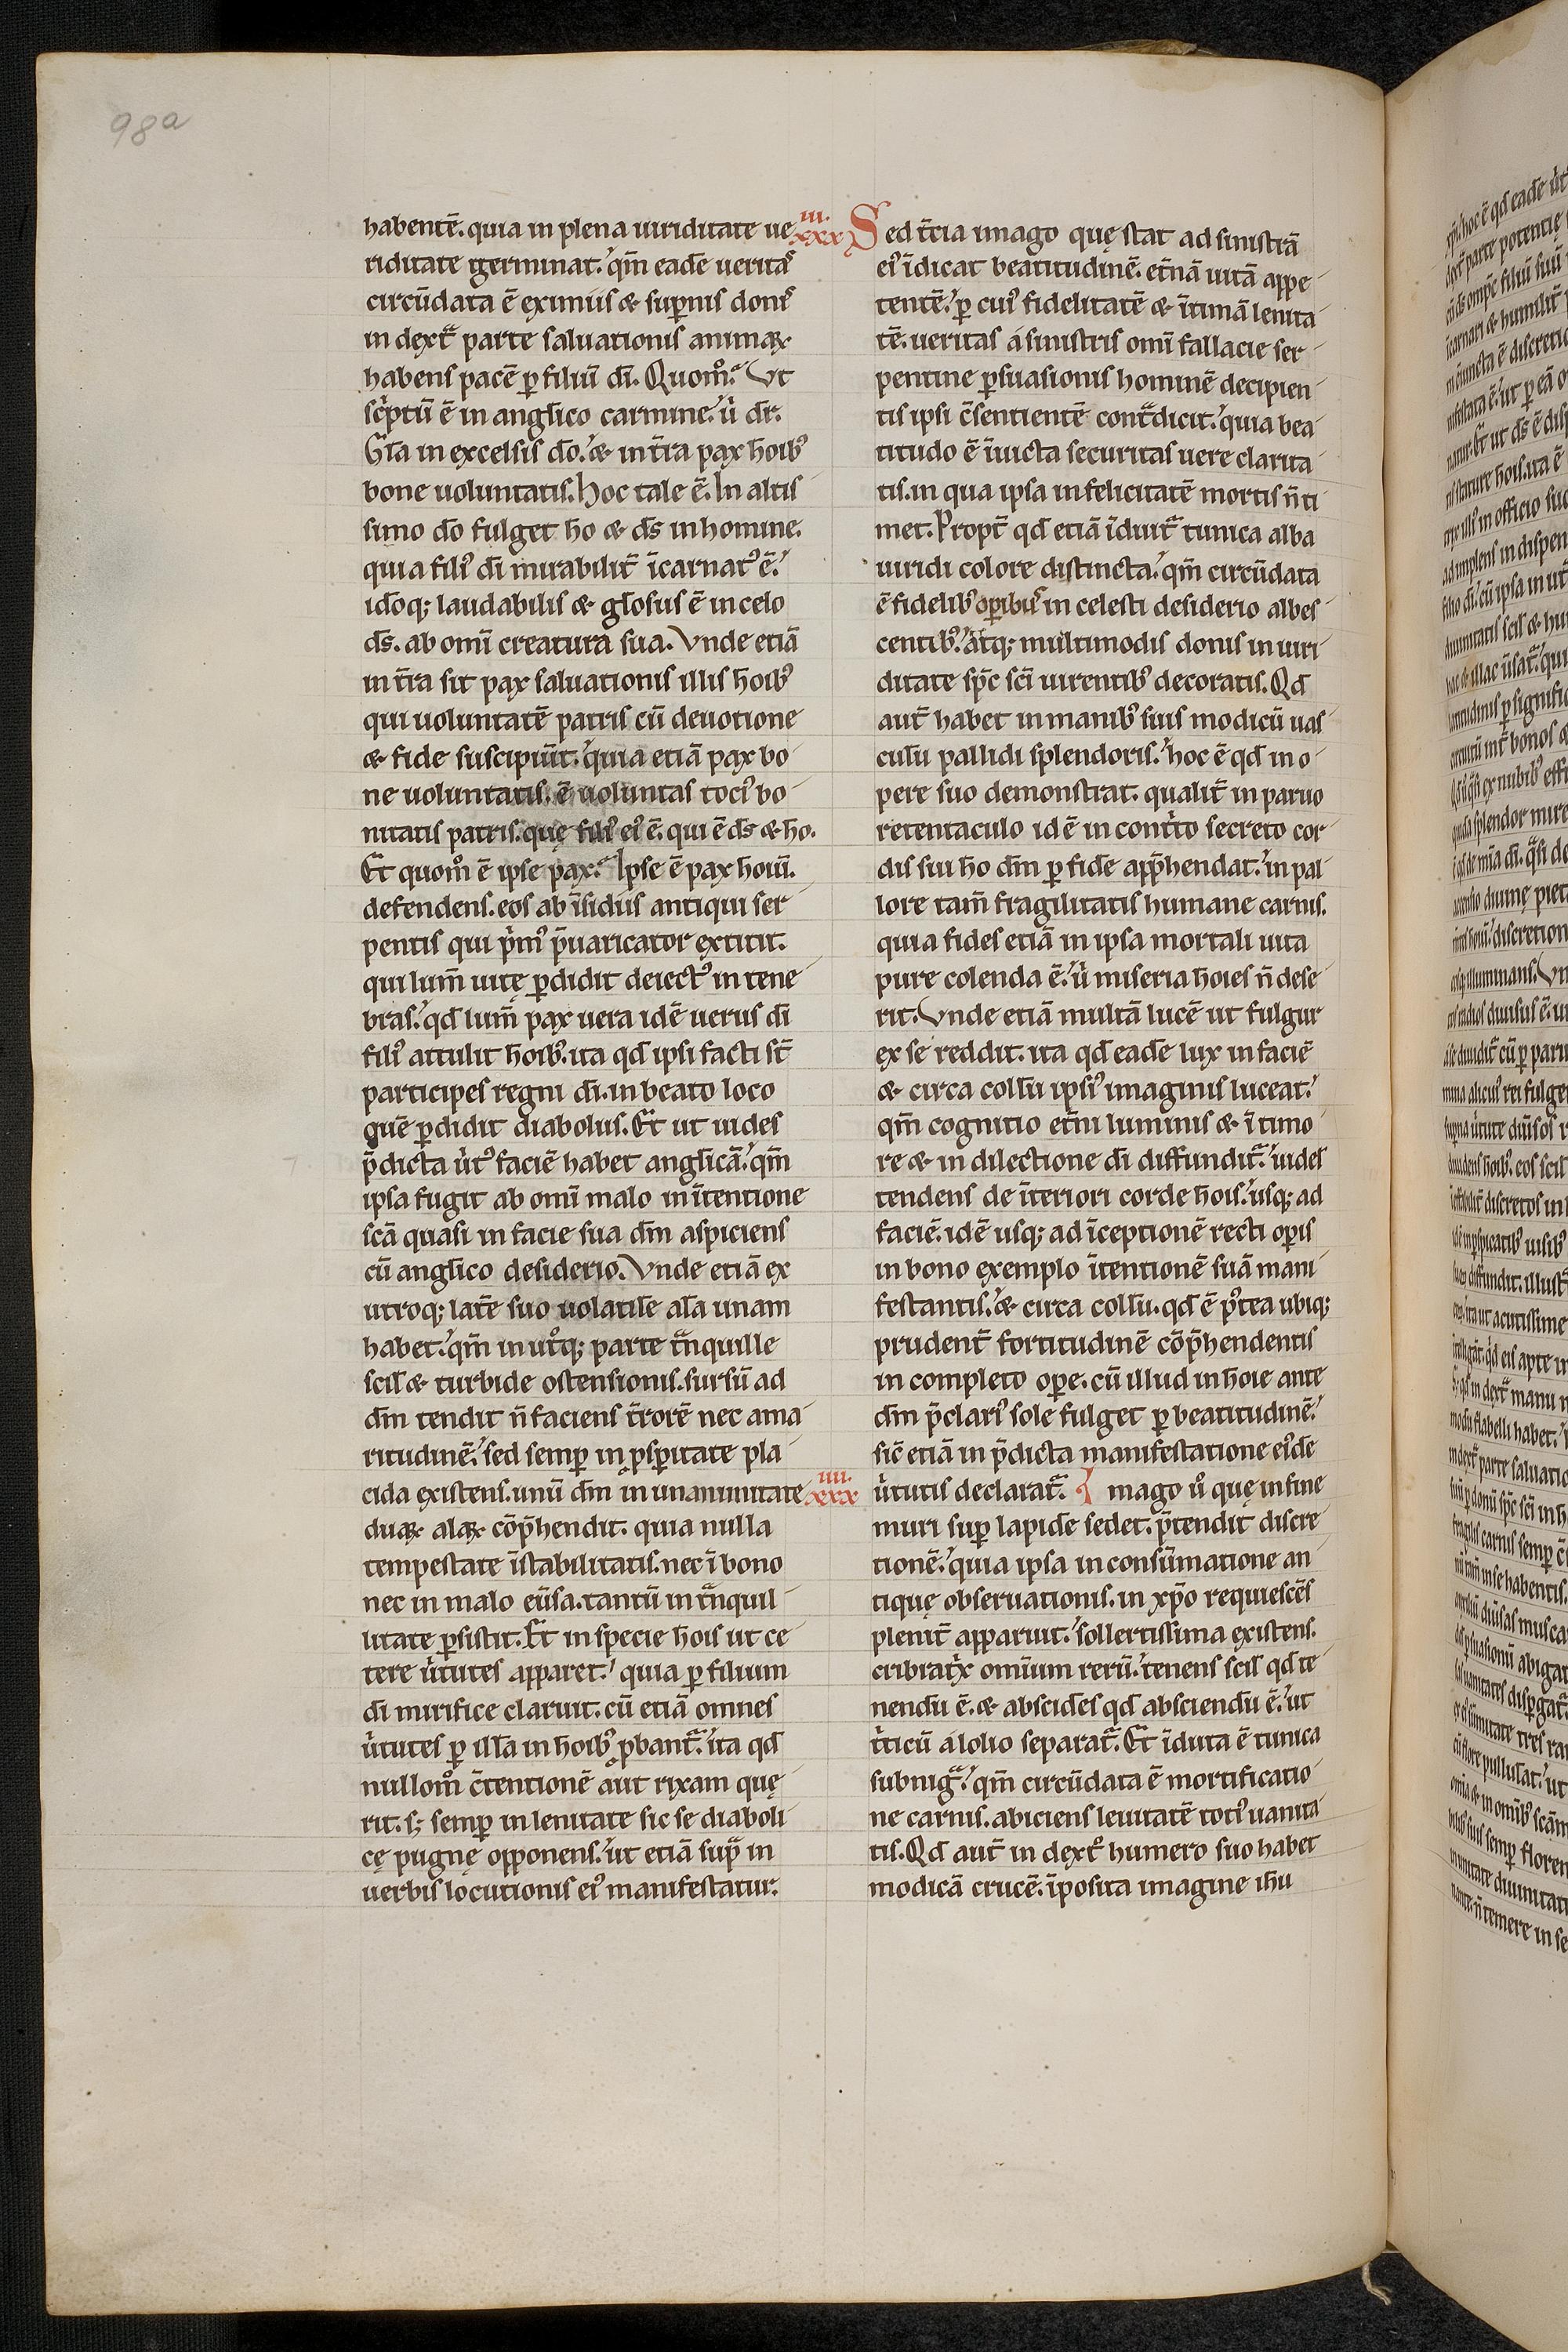 98a
habentē. quia in plena uiriditate ue
riditate germinat.' qm̄ eadē ueritaſ
circūdata ē eximiiſ & ſup̄niſ doniſ
in dext̄ᵃ parte ſaluationiſ animaꝝ
habenſ pacē ꝑ filiū dī. Quomͦ? Vt
ſcͥptū ē in angl̄ico carmine.' u̇ dr̄.
Gl̄a in excelſiſ dō.' & in t̄ra pax hoībꝰ
bone uoluntatiſ. Hoc tale ē. In altiſ
ſimo dō fulget hō & dſ̄ in homine.
quia filiꝰ dī mirabilit̄ īcarnatꝰ ē.'
idoq; laudabiliſ & gl̄oſuſ ē in celo
dſ̄. ab omī creatura ſua. Vnde etiā
in t̄ra ſit pax ſaluationiſ illiſ hoībꝰ
qui uoluntatē patriſ cū deuotione
& fide ſuſcipiūt.' quia etiā pax bo
ne uoluntatiſ. ē uoluntaſ tociꝰ bo
nitatiſ patriſ. quę filiꝰ eiꝰ ē. qui ē dſ̄ & hō.
Et quomͦ ē ipſe pax? Ipſe ē pax hoiū.
defendenſ. eoſ ab īſidiiſ antiqui ſer
pentiſ qui pͥmꝰ p̄uaricator extitit.
qui lum̄ uitę ꝑdidit deiectꝰ in tene
braſ.' qd̄ lum̄ pax uera idē ueruſ dī
filiꝰ attulit hoībꝰ. ita qd̄ ipſi facti ſt̄
participeſ regni dī. in beato loco
quē ꝑdidit diaboluſ. Et ut uideſ
p̄dicta u̇tꝰ faciē habet angl̄icā.' qm̄
ipſa fugit ab omī malo in ītentione
ſcā quaſi in facie ſua dm̄ aſpicienſ
cū angl̄ico deſiderio. Vnde etiā ex
utroq; lat̄e ſuo uolatil̄e al̄a unam
habet.' qm̄ in utͦq; parte tᵃnquille
ſcil̄ & turbide oſtenſioniſ. ſurſū ad
dm̄ tendit n̄ facienſ t̄rorē nec ama
ritudinē.' ſed ſemꝑ in ꝓſꝑitate pla
cida exiſtenſ. unū dm̄ in unanimitate
duaꝝ alaꝝ cōp̄hendit. quia nulla
tempeſtate īſtabilitatiſ. nec ī bono
nec in malo eūſa. tantū in tᵃnquil
litate ꝑſiſtit. Et in ſpecie hoīſ ut ce
tere u̇tuteſ apparet.' quia ꝑ filium
dī mirifice claruit. cū etiā omneſ
u̇tuteſ ꝑ ill̄a in hoībꝰ ꝓbant̄ᵃ.' ita qd̄
nullomͦ c̄tentionē aut rixam quę
rit. ſꝫ ſemꝑ in lenitate ſic ſe diaboli
cę pugnę opponenſ.' ut etiā ſup̄ᵃ in
uerbiſ locutioniſ eiꝰ manifeſtatur.
iii.
xxx
Sed t̄cia imago quę ſtat ad ſiniſtrā
eiꝰ īdicat beatitudinē. et̄nā uitā appe
tentē.' ꝑ cuiꝰ fidelitatē & ītimā lenita
tē. ueritaſ a ſiniſtriſ omī fallacie ſer
pentine ꝑſuaſioniſ hominē decipien
tiſ ipſi c̄ſentientē contᵃdicit.' quia bea
titudo ē īuicta ſecuritaſ uere clarita
tiſ. in qua ipſa infelicitatē mortiſ n̄ ti
met. Propt̄ qd̄ etiā īduit̄ᵃ tunica alba
uiridi colore diſtincta.' qm̄ circūdata
ē fidelibꝰ oꝑibuſ in celeſti deſiderio albeſ
centibꝰ.' atq; multimodiſ doniſ in uiri
ditate ſpc̄ ſcī uirentibꝰ decoratiſ. Qd̄
aut̄ habet in manibꝰ ſuiſ modicū uaſ
culū pallidi ſplendoriſ.' hoc ē qd̄ in o
pere ſuo demonſtrat. qualit̄ in paruo
retentaculo idē in contͥto ſecreto cor
diſ ſui hō dm̄ ꝑ fidē app̄hendat.' in pal
lore tam̄ fragilitatiſ humane carniſ.
quia fideſ etiā in ipſa mortali uita
pure colenda ē.' u̇ miſeria hoīeſ n̄ deſe
rit. Vnde etiā multā lucē ut fulgur
ex ſe reddit. ita qd̄ eadē lux in faciē
& circa collū ipſiꝰ imaginiſ luceat.'
qm̄ cognitio et̄ni luminiſ & ī timo
re & in dilectione dī diffundit̄ᵃ.' uideſ
tendenſ de īteriori corde hoīſ.' uſq; ad
faciē. idē uſq; ad īceptionē recti oꝑiſ
in bono exemplo ītentionē ſuā mani
feſtantiſ.' & circa collū. qd̄ ē pꝰtea ubiq;
prudent̄ fortitudinē cōp̄hendentiſ
in completo oꝑe. cū illud in hoīe ante
dm̄ p̄clariꝰ ſole fulget ꝑ beatitudinē.'
ſic̄ etiā in p̄dicta manifeſtatione eiꝰdē
u̇tutiſ declarat̄ᵃ.
iiii.
xxx
Imago uͦ quę in fine
muri ſuꝑ lapidē ſedet. p̄tendit diſcre
tionē.' quia ipſa in conſūmatione an
tiquę obſeruationiſ. in xp̄o requieſcēſ
plenit̄ apparuit.' ſollertiſſima exiſtenſ.
cribratͥx omīum rerū.' tenenſ ſcil̄ qd̄ te
nendū ē. & abſcīdeſ qd̄ abſciendū ē.' ut
tͥticū a lolio ſeparat̄ᵃ. Et īduta ē tunica
ſubnigᵃ.' qm̄ circūdata ē mortificatio
ne carniſ. abicienſ leuitatē totiꝰ uanita
tiſ. Qd̄ aut̄ in dextͦ humero ſuo habet
modicā crucē. īpoſita imagine ihu